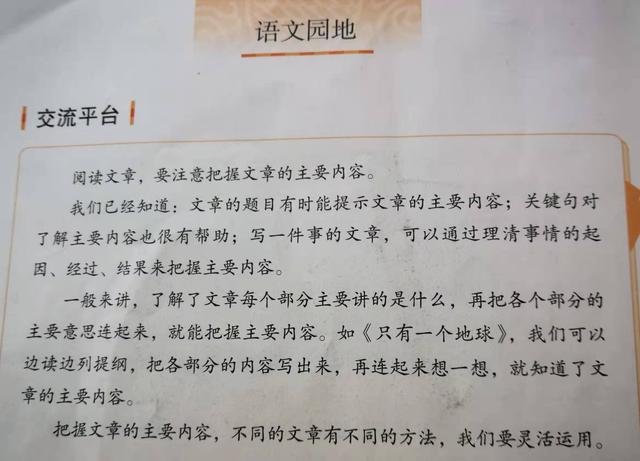 语文园地
交流平台
阅读文章，要注意把握文章的主要内容。
我们已经知道：文章的题目有时能提示文章的主要内容；关键句对
了解主要内容也很有帮助；写一件事的文章，可以通过理清事情的起
因、经过、结果来把握主要内容。
一般来讲，了解了文章每个部分主要讲的是什么，再把各个部分的
主要意思连起来，就能把握主要内容。如《只有一个地球》，我们可以
边读边列提纲，把各部分的内容写出来，再连起来想一想，就知道了文
章的主要内容。
把握文章的主要内容，不同的文章有不同的方法，我们要灵活运用。